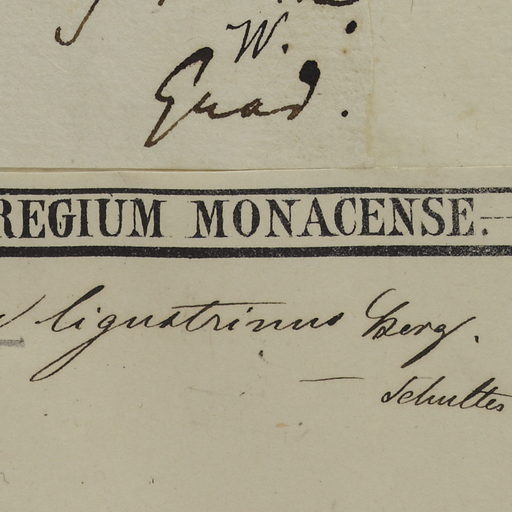 W.
Guad.
REGIUM MONACENSE.
ligustrinus Berg.
— Schultes